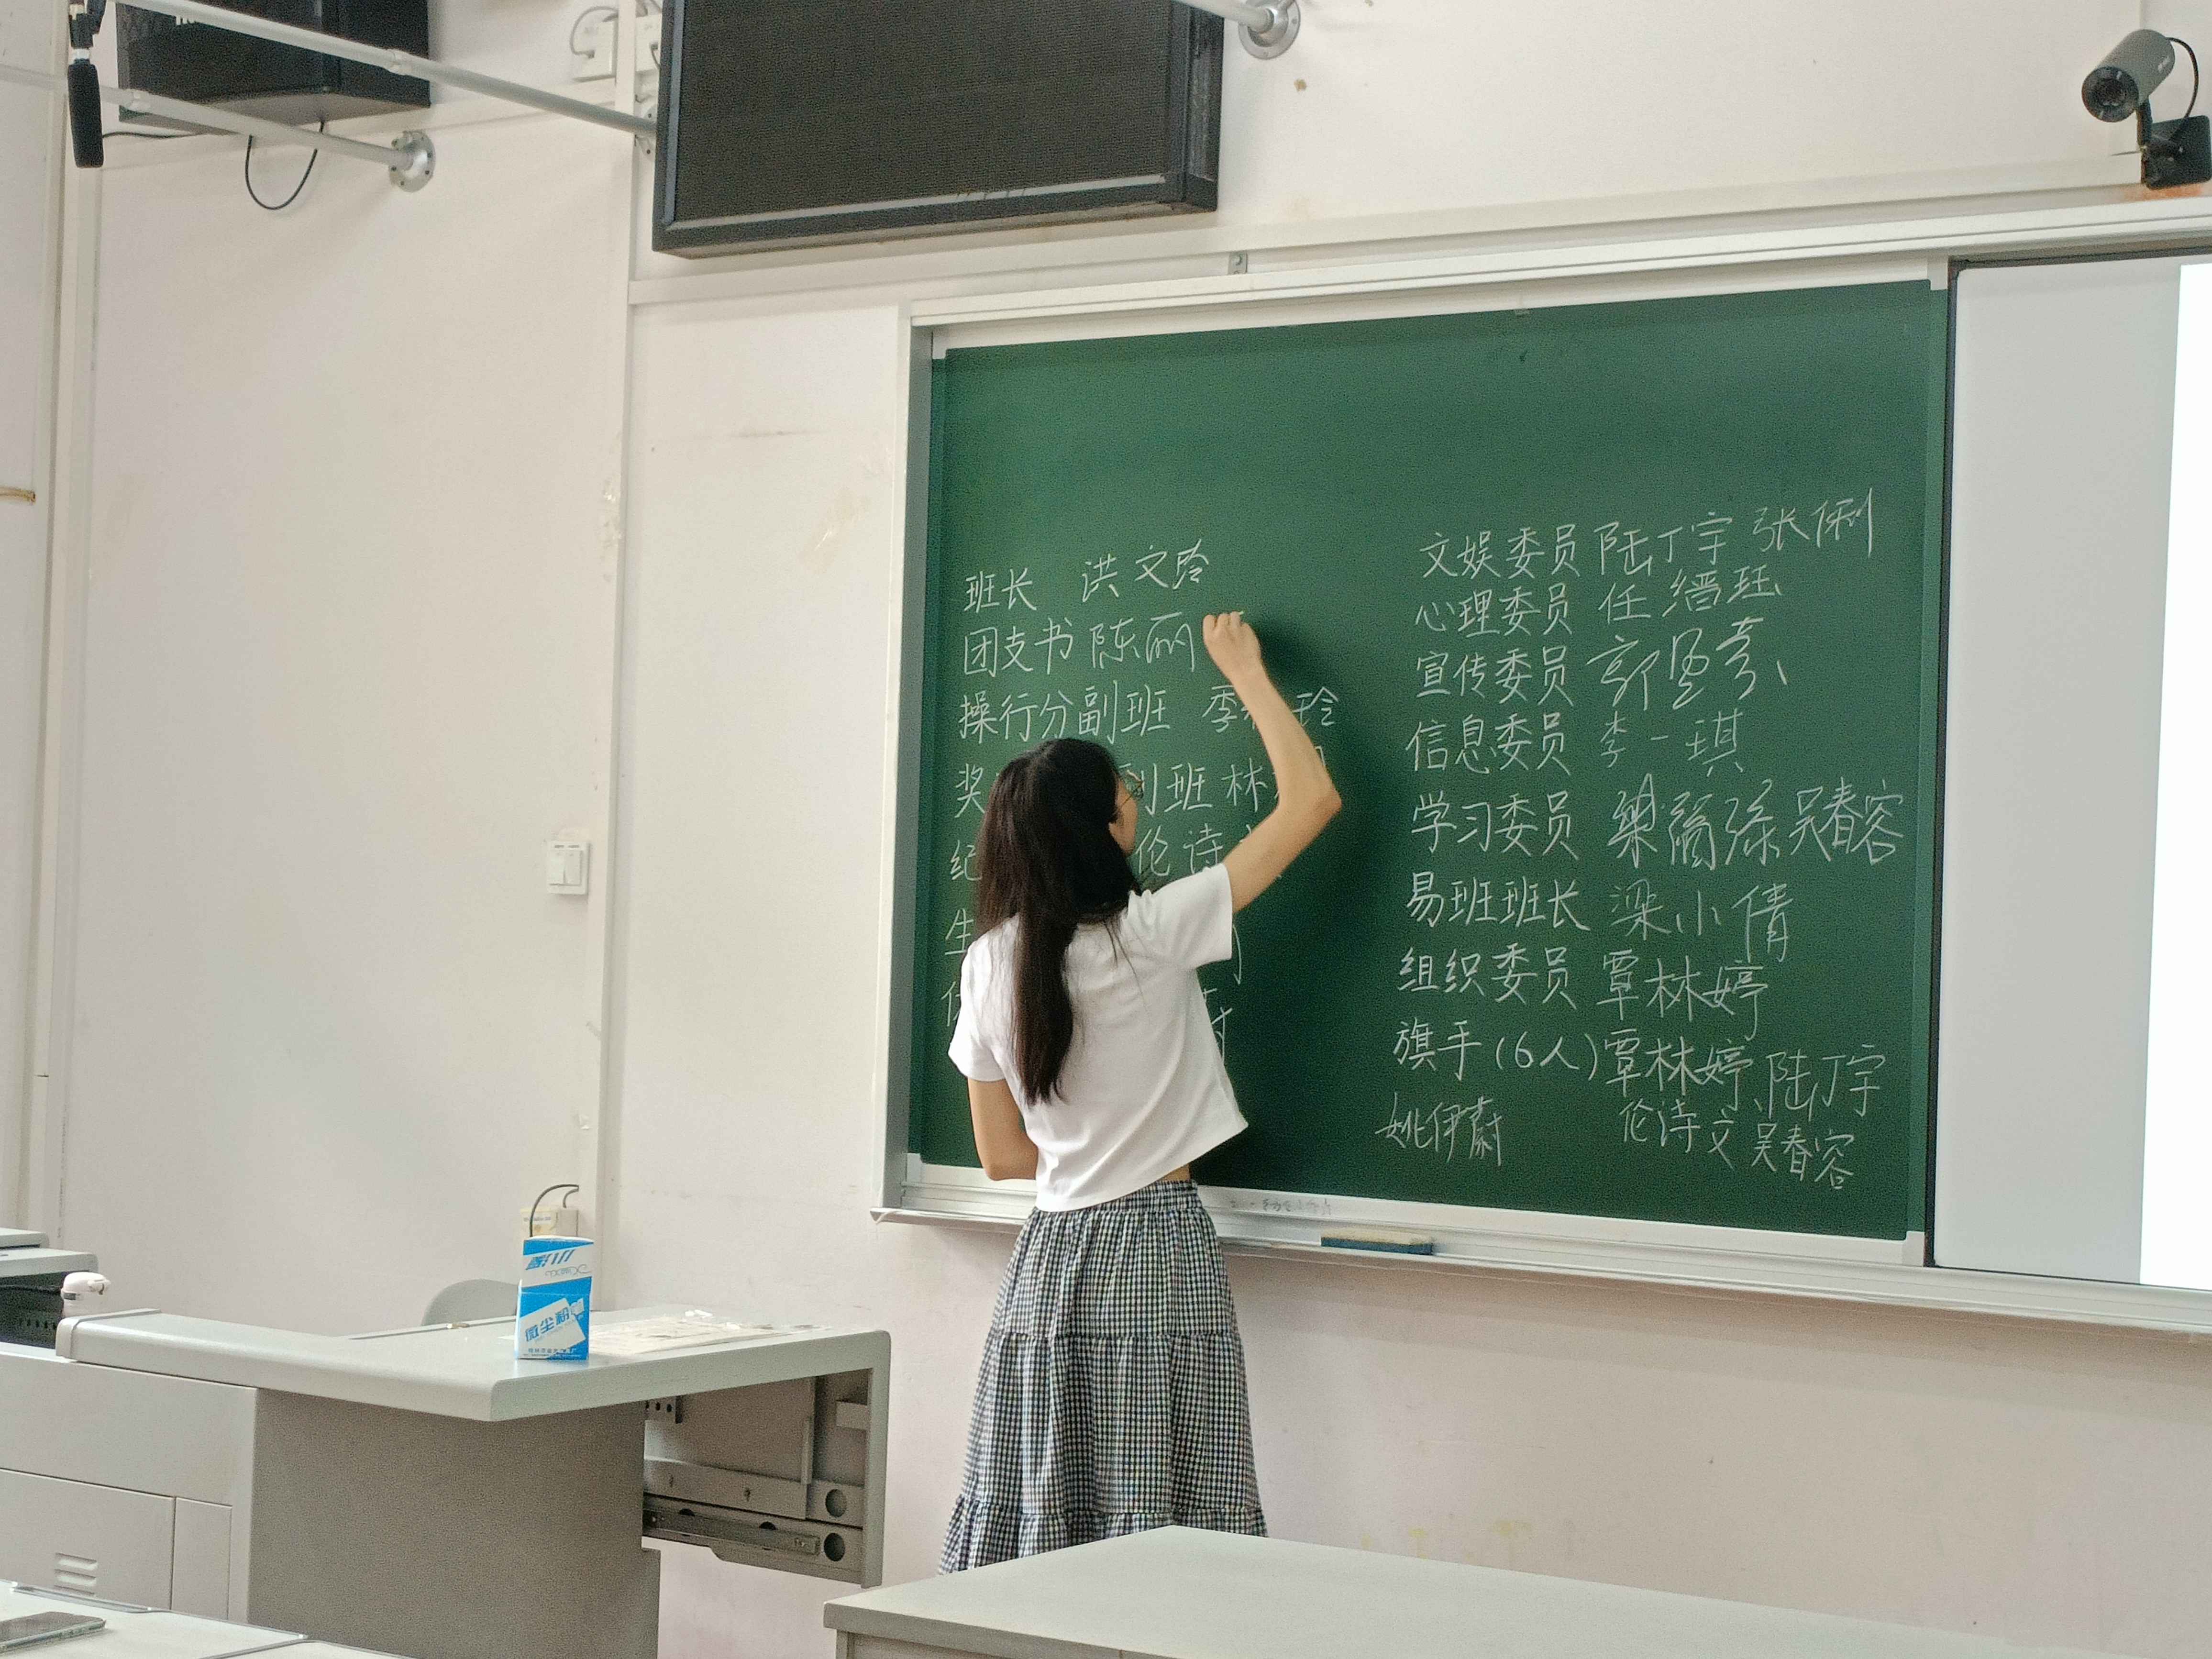 班长 洪文玲
团支书 陈丽
操行分副班 季 玲
奖 副班 林
纪 伦诗
生
文娱委员 陆丁宇 张俐
心理委员 任缙珏
宣传委员 郭
信息委员 李一琪
学习委员 梁 吴春容
易班班长 梁小倩
组织委员 覃林婷
旗手(6人) 覃林婷、陆丁宇
姚伊蔚 伦诗文 吴春容
微尘粉